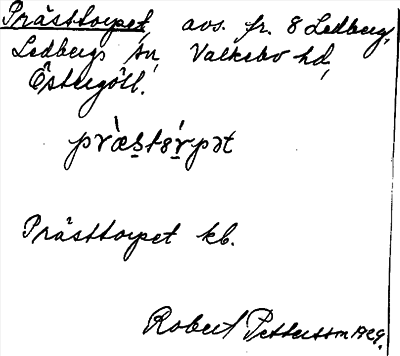 Prästtorpet, avs. fr. 8 Ledberg,
Ledbergs sn, Valkebo hd,
Östergötl.
præ̀stɷr̀pət
Prästtorpet kb.
Robert Pettersson 1929.